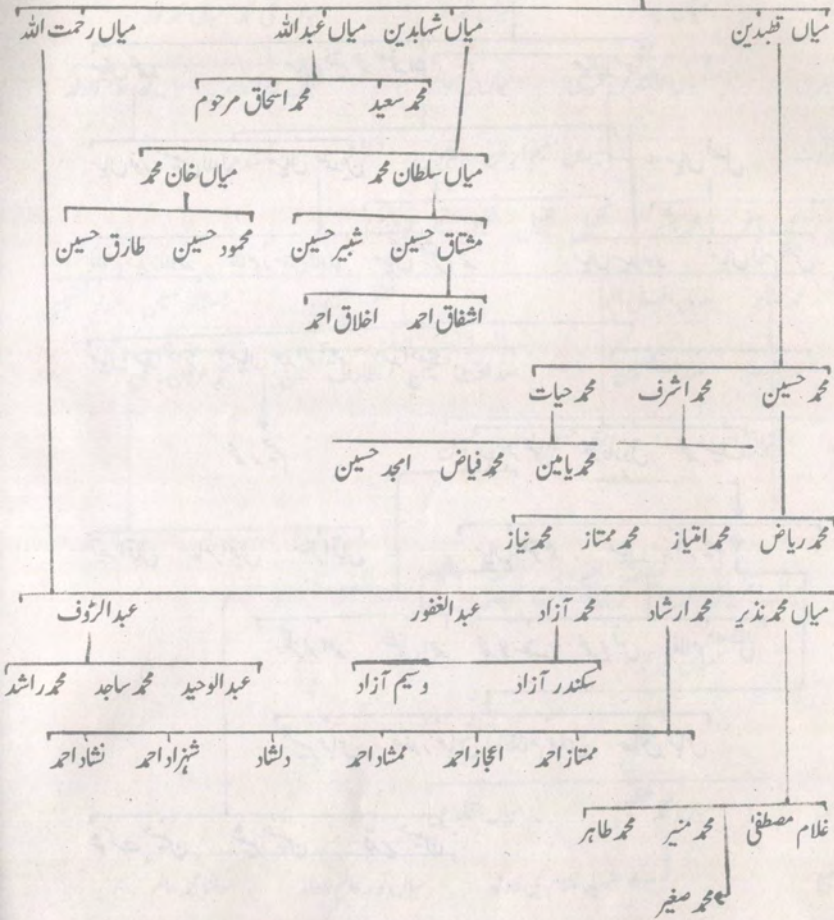 میاں قطبدین میاں شہابدین میاں عبداللہ میاں رحمت اللہ
محمد سعید محمد اسحاق مرحوم
میاں سلطان محمد میاں خان محمد
مشتاق حسین شبیر حسین محمود حسین طارق حسین
اشفاق احمد اخلاق احمد
محمد حسین محمد اشرف محمد حیات
محمد یامین محمد فیاض امجد حسین
محمد ریاض محمد امتیاز محمد ممتاز محمد نیاز
میاں محمد نذیر محمد ارشاد محمد آزاد عبدالغفور عبدالرؤف
سکندر آزاد وسیم آزاد عبدالوحید محمد ساجد محمد راشد
ممتاز احمد اعجاز احمد ممشاد احمد دلشاد شہزاد احمد نشاد احمد
غلام مصطفیٰ محمد منیر محمد طاہر
محمد صغیر